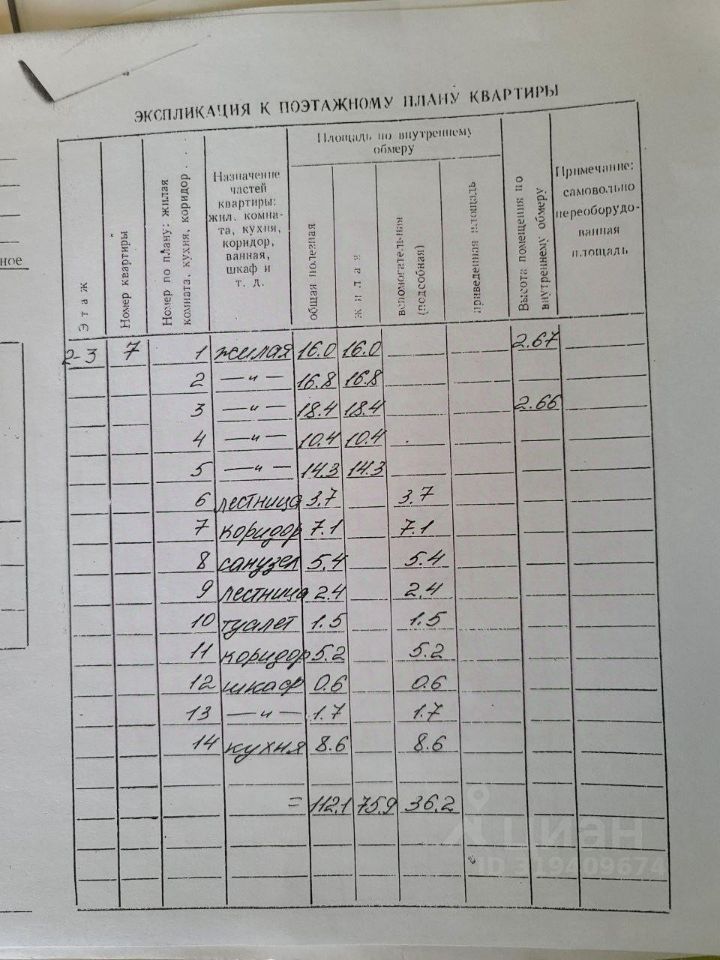 ЭКСПЛИКАЦИЯ К ПОЭТАЖНОМУ ПЛАНУ КВАРТИРЫ
ное
Этаж
Номер квартиры
Номер по плану: жилая
комната, кухня, коридор . . .
Назначение
частей
квартиры:
жил. комна-
та, кухня,
коридор,
ванная,
шкаф и
т. д.
Площадь по внутреннему
обмеру
общая полезная
жилая
вспомогательная
(подсобная)
приведенная площадь
Высота помещения по
внутреннему обмеру
Примечание:
самовольно
переоборудо-
ванная
площадь
2-3 7 1 жилая 16.0 16.0 2.67
2 —"— 16.8 16.8
3 —"— 18.4 18.4 2.66
4 —"— 10.4 10.4
5 —"— 14.3 14.3
6 лестница 3.7 3.7
7 коридор 7.1 7.1
8 санузел 5.4 5.4
9 лестница 2.4 2.4
10 туалет 1.5 1.5
11 коридор 5.2 5.2
12 шкаф 0.6 0.6
13 —"— 1.7 1.7
14 кухня 8.6 8.6
= 112.1 75.9 36.2
циан
ID 319409674